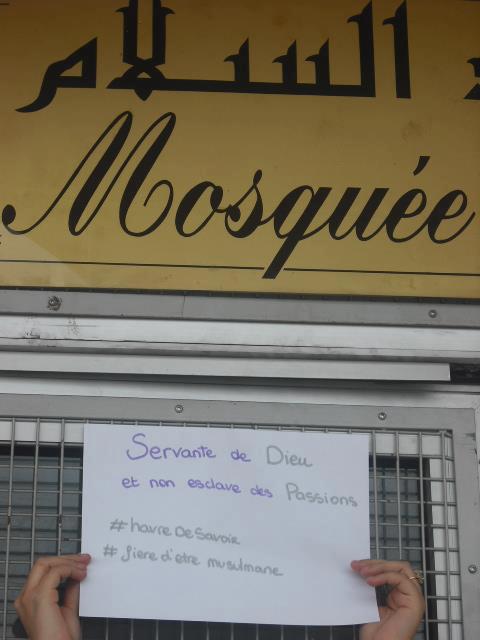 السلام
Mosquée
Servante de Dieu
et non esclave des Passions
#havreDeSavoie
# fiere d'etre musulmane